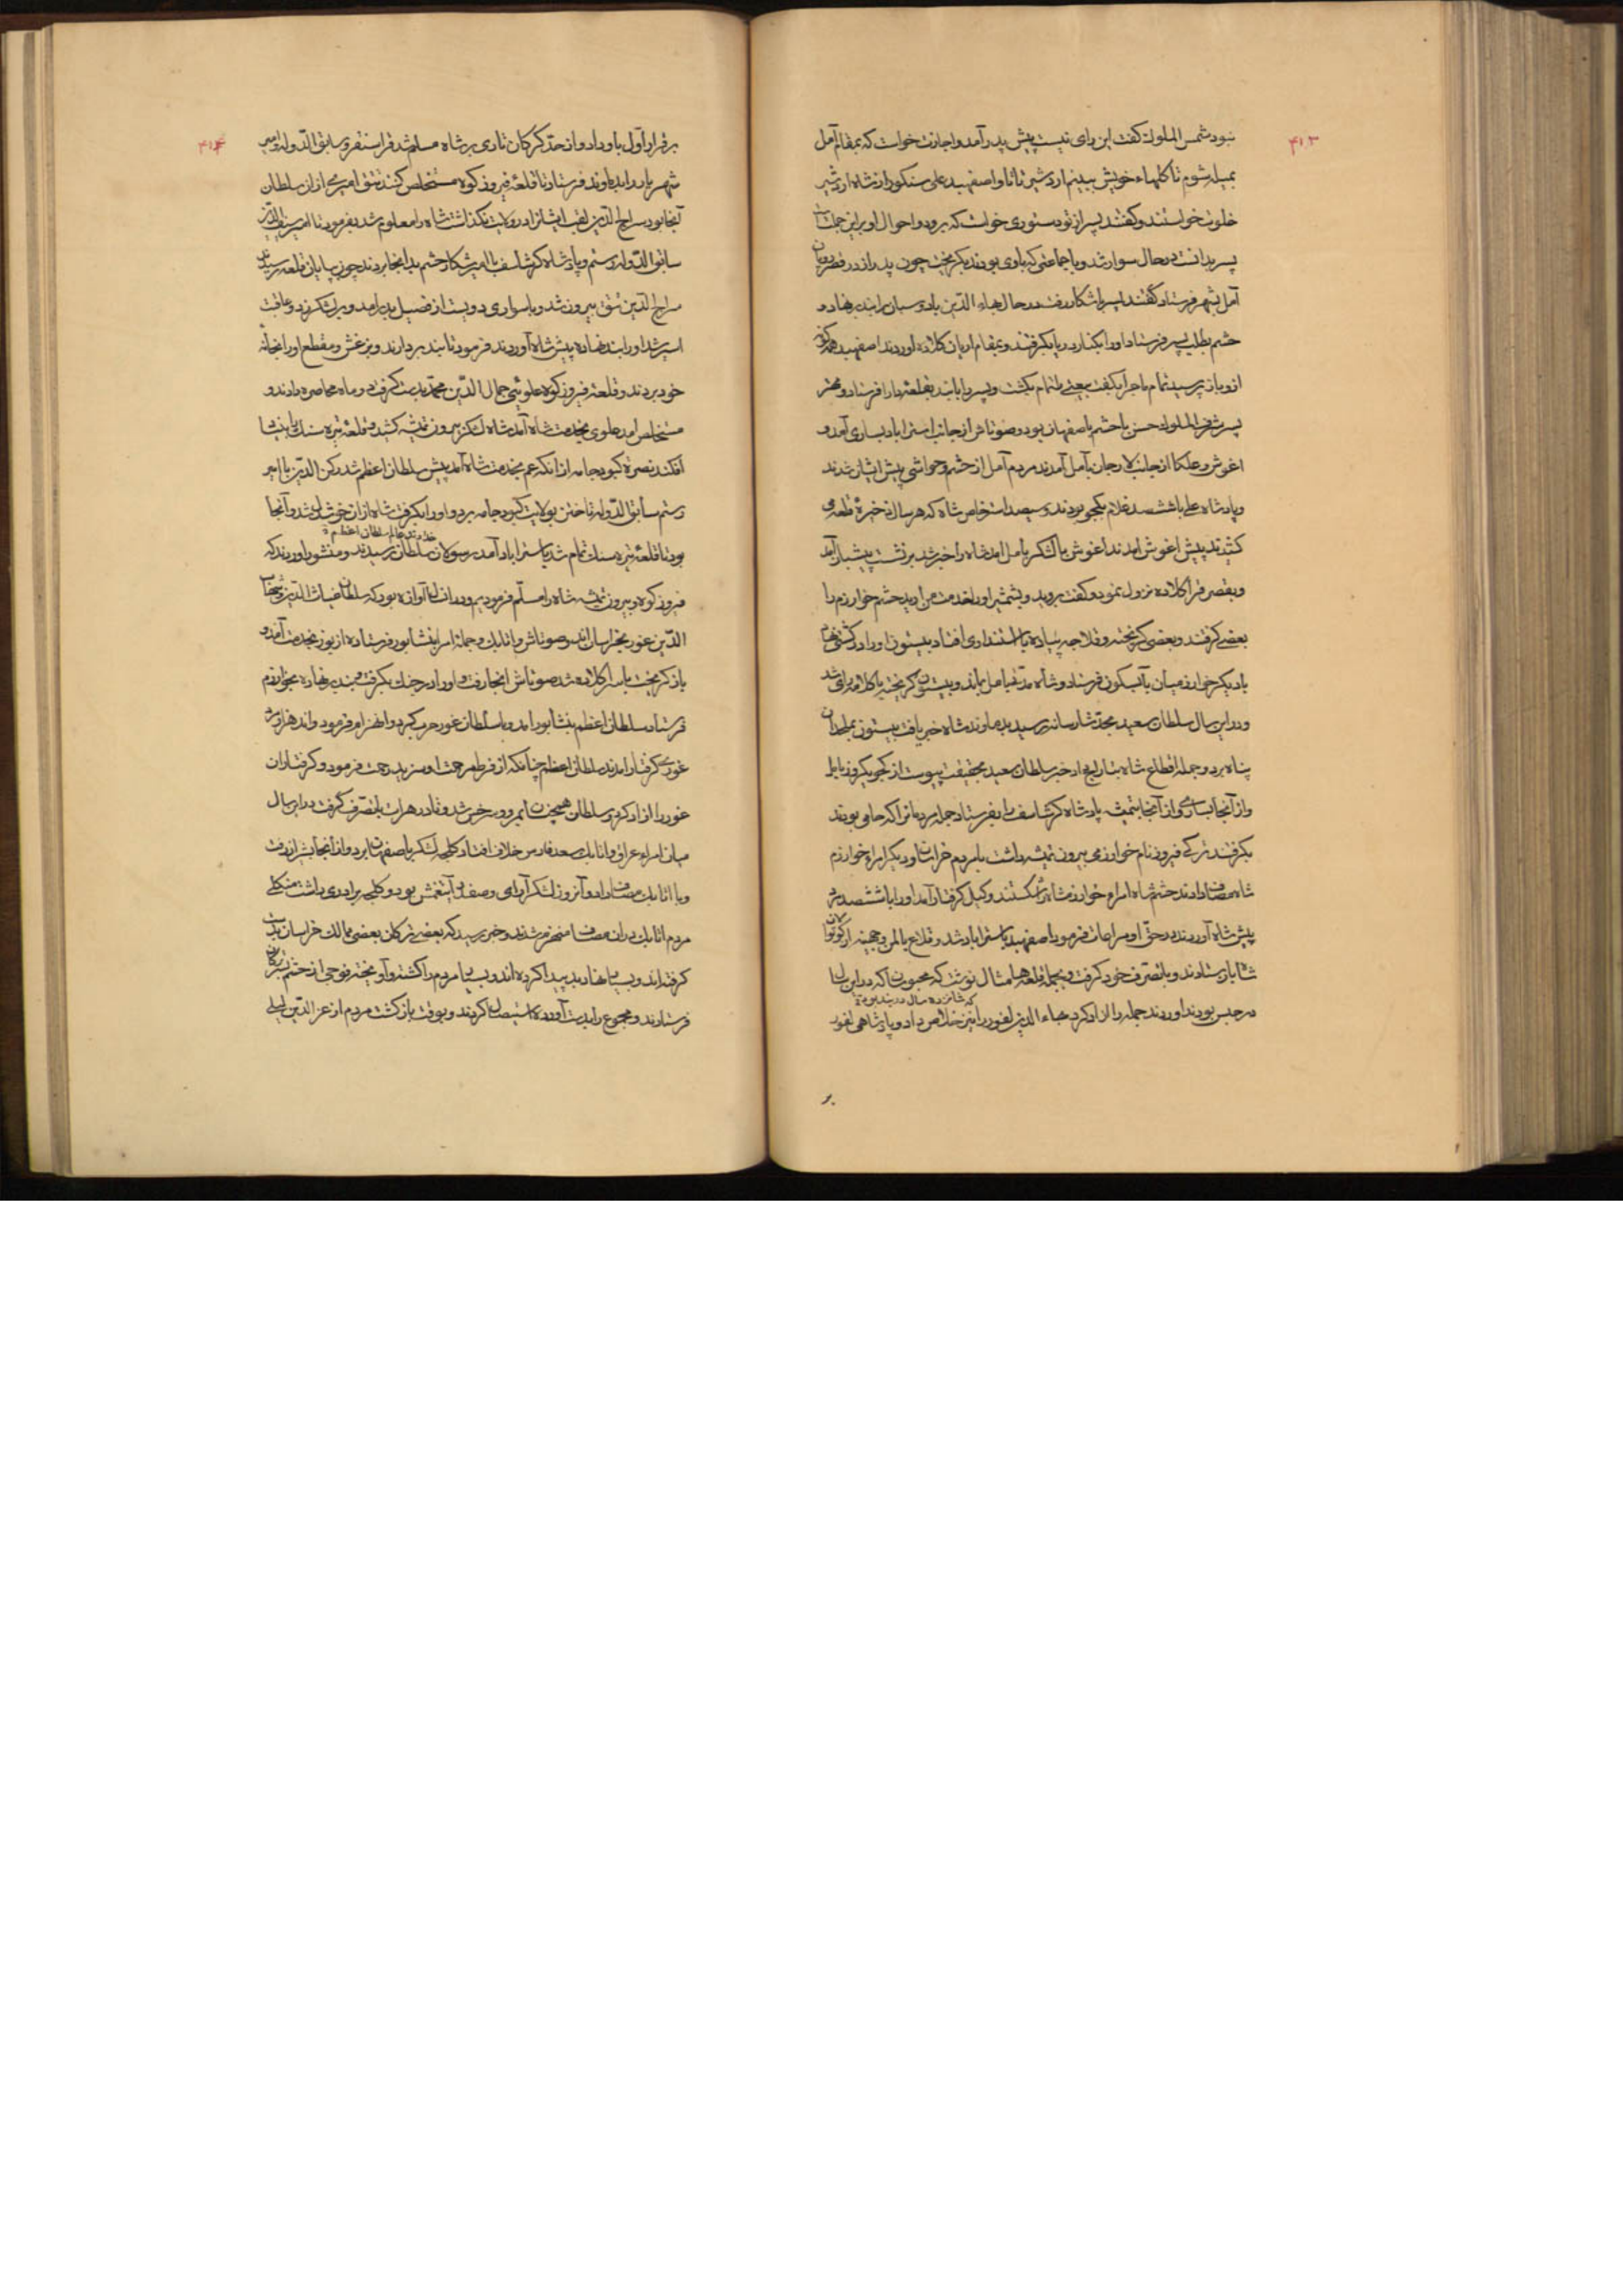 ۴۱۳
نبود شمس الملوک گفت این رای نیست پیش پدر آمد و اجازت خواست که بمقام آمل
بمیله شوم تا گلهاء خویش ببینم اردشیر تاتا و اصفهبد علی سنکور از شاه اردشیر
خلوت خواستند و گفتند پسر از تو دستوری خواست که برود و احوال او براین جمله
پسر بدانست در حال سوار شد و با جماعتی که باوی بودند بگریخت چون پدر را
آمل بشهر فرستاد گفتند پسر با شکار رفت در حال بهاء الدین را بند برنهاد و
حشم بطلب پسر فرستاد او را بکنار دریا بگرفتند و بمقام کلاده آوردند اصفهبد
ازو باز پرسید تمام ماجرا بگفت بعضی را تمام بکشت و پسر را با بند بقلعه دارا فرستاد و
پسر شرف الملوک حسن با حشم باصفهان بود و صوتاش از جانب استراباد بساری آمد و
اغوش و علکا از جانب لارجان بآمل آمدند مردم آمل از حشم و حواشی پیش ایشان شدند
و پادشاه علی با ششصد غلام بودند و سیصد اسب خاص شاه که هر سال ذخیره قلعه می
کشیدند پیش اغوش آمدند اغوش با لشکر بآمل آمد شاه را خبر شد برنشست آمد
و بقصر قراکلاده نزول نمود و گفت بروید و بشمشیر او را بخدمت من آرید حشم خوارزم را
بعضی گرفتند و بعضی گریختند و پیاده باستنداری افتاد بیستون او را در کشتی
با دیگر خوارزمیان بآبسکون فرستاد و شاه مدتی بآمل بماند و بیستون گریخته با کلار شد
و در این سال سلطان سعید محمد شارسانه رسید بدماوند شاه خبر یافت بیستون بملحدان
پناه برد و جمله اقطاع شاه بتاراج داد خبر سلطان سعید بحقیقت پیوست از کجو بکروز بآمل
و از آنجا بساری و از آنجا بتمیشه پادشاه گرشاسف را بفرستاد جمله مردمانرا که حامی بودند
بگرفتند ترکی فیروز نام خوارزمی بیرون تمیشه داشت با مردم خراسان و دیگر امراء خوارزم
شاه مصاف دادند حشم شاه امراء خوارزمشاه را شکستند و کبل گرفتار آمد او را با ششصد مرد
پیش شاه آوردند در حق او مراعات فرمود اصفهبد باستراباد شد و قلاع بالمن و جهینه از کوتوالان
شاه باز ستادند و با تصرف خود گرفت و بجمله قلعه ها مثال نوشت که محبوسان که در این سال
که شانزده سال در بند بود
در حبس بودند آوردند جمله را آزاد کرد ضیاء الدین لفور را نیز خلاص داد و پادشاهی لفور
بر
۴۱۴
برقرار اول باو داد و از حد گرگان تا ری بر شاه مسلم شد قراسنقر و سابق الدوله و امیر
شهریار را بدماوند فرستاد تا قلعه فیروزکوه مستخلص کنند تتق امیری از آن سلطان
آنجا بود سراج الدین لقب ایشانرا در ولایت نگذاشت شاه را معلوم شد بفرمود تا امیر
سابق الدوله رستم و پادشاه گرشاسف با امیر شکار حشم بدانجا بردند چون بپایان قلعه رسیدند
سراج الدین تتق بیرون شد و با سواری دویست از فصیل بدر آمد و بر لشکر زد و عاقبت
اسیر شد او را بند نهاده پیش شاه آوردند فرمود تا بند بردارند و بزغش و مقطع او را بخانه
خود بردند و قلعه فیروزکوه علویئی جمال الدین محمد بدست گرفت دو ماه محاصره دادند و
مستخلص آمد علوی بخدمت شاه آمد شاه لشکر بیرون تمیشه کشید و قلعه تیره سنک را بنیاد
افکند نصرة کبودجامه از آنکه عم بخدمت شاه آمد پیش سلطان اعظم شد رکن الدین با امیر
رستم سابق الدوله تاختن بولایت کبودجامه برد و او را بگرفت شاه از آن خوشدل شد و آنجا
بود تا قلعه تیره سنک تمام شد باستراباد آمد رسولان سلطان رسیدند و منشور آوردند که
خداوند عالم سلطان اعظم
فیروزکوه و بیرون تمیشه شاه را مسلم فرمودیم و در آن سال آوازه بود که سلطان غیاث الدین و شهاب
الدین غور بخراسان آیند و صوتاش و اتابک و جمله امرا بنشابور فرستاده از یوز بخدمت آمد و
باز گریخت با سر کلاده شد صوتاش آنجا رفت و او را در جنگ بگرفت و بند برنهاده بخوارزم
فرستاد سلطان اعظم بنشابور آمد و با سلطان غور حرب کرد و انهزام فرمود و اند هزار مرد
غوری گرفتار آمدند سلطان اعظم چنانکه از فرط مرحمت او سزید رحمت فرمود و گرفتاران
غور را آزاد کرد و سلطان همچنان بمرو و سرخس شد و تا در هرات با تصرف گرفت در این سال
میان امراء عراق و اتابک سعد فارس خلاف افتاد ککجه لشکر باصفهان برد و از آنجا بشیراز رفت
و با اتابک مصاف داد و آنروز لشکر آرای وصف آیتغمش بود و ککجه برادری داشت منکلی
مردم اتابک در آن مصاف منهزم شدند و خبر رسید که بعضی ترکان بعضی ممالک خراسان بدست
گرفته اند و بسیار فساد پیدا کرده اند و بسیار مردم را کشته و آویخته فوجی از حشم بترکان
فرستادند و مجموع را بدست آورده استیصال کردند و بوقت بازگشت مردم از عز الدین